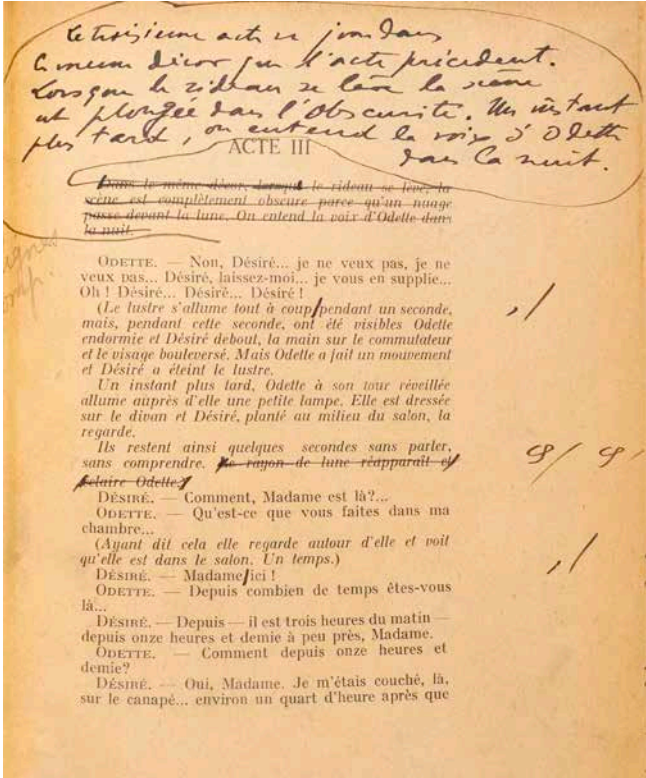 Le troisième acte se joue dans
le même décor que l'acte précédent.
Lorsque le rideau se lève la scène
est plongée dans l'obscurité. Un instant
plus tard, on entend la voix d'Odette
dans la nuit.
ACTE III
Dans le même décor, lorsque le rideau se lève, la
scène est complètement obscure parce qu'un nuage
passe devant la lune. On entend la voix d'Odette dans
la nuit.
ODETTE. — Non, Désiré... je ne veux pas, je ne
veux pas... Désiré, laissez-moi... je vous en supplie...
Oh ! Désiré... Désiré... Désiré !
(Le lustre s'allume tout à coup/pendant un seconde, ,/
mais, pendant cette seconde, ont été visibles Odette
endormie et Désiré debout, la main sur le commutateur
et le visage bouleversé. Mais Odette a fait un mouvement
et Désiré a éteint le lustre.
Un instant plus tard, Odette à son tour réveillée
allume auprès d'elle une petite lampe. Elle est dressée
sur le divan et Désiré, planté au milieu du salon, la
regarde.
Ils restent ainsi quelques secondes sans parler,
sans comprendre. Le rayon de lune réapparaît et
éclaire Odette.)
DÉSIRÉ. — Comment, Madame est là?...
ODETTE. — Qu'est-ce que vous faites dans ma
chambre...
(Ayant dit cela elle regarde autour d'elle et voit
qu'elle est dans le salon. Un temps.)
DÉSIRÉ. — Madame/ici ! ,/
ODETTE. — Depuis combien de temps êtes-vous
là...
DÉSIRÉ. — Depuis — il est trois heures du matin —
depuis onze heures et demie à peu près, Madame.
ODETTE. — Comment depuis onze heures et
demie?
DÉSIRÉ. — Oui, Madame. Je m'étais couché, là,
sur le canapé... environ un quart d'heure après que